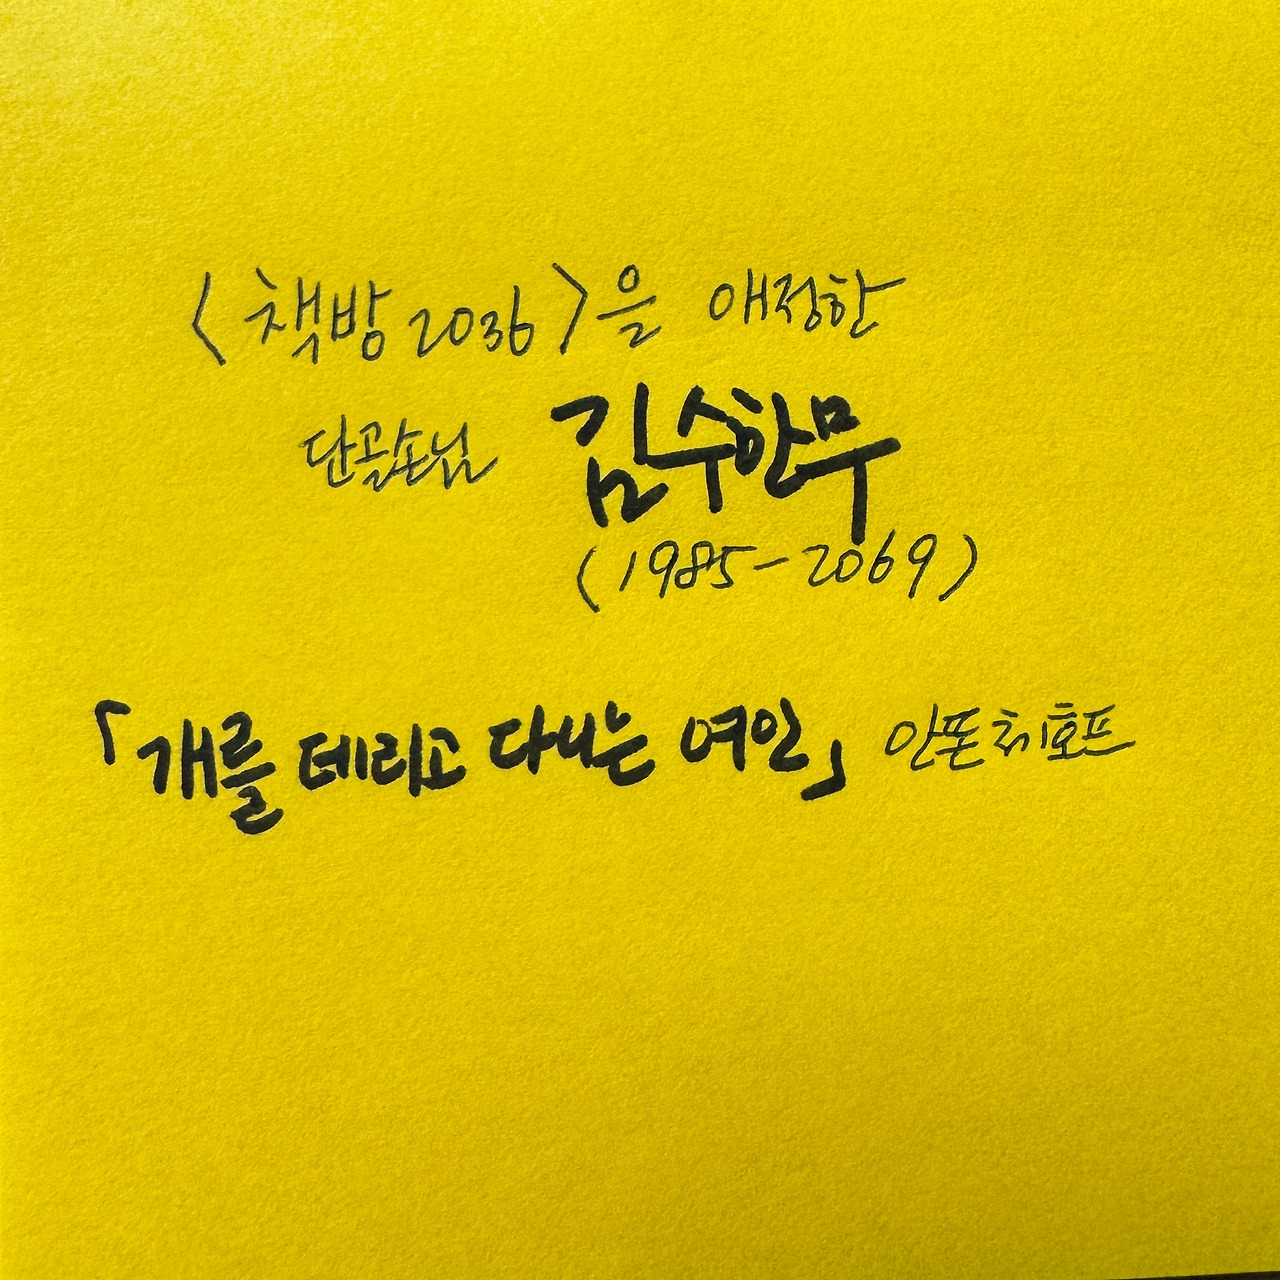 〈책방2036〉을 애정한
단골손님 김수한무
(1985-2069)
「개를 데리고 다니는 여인」 안톤체호프